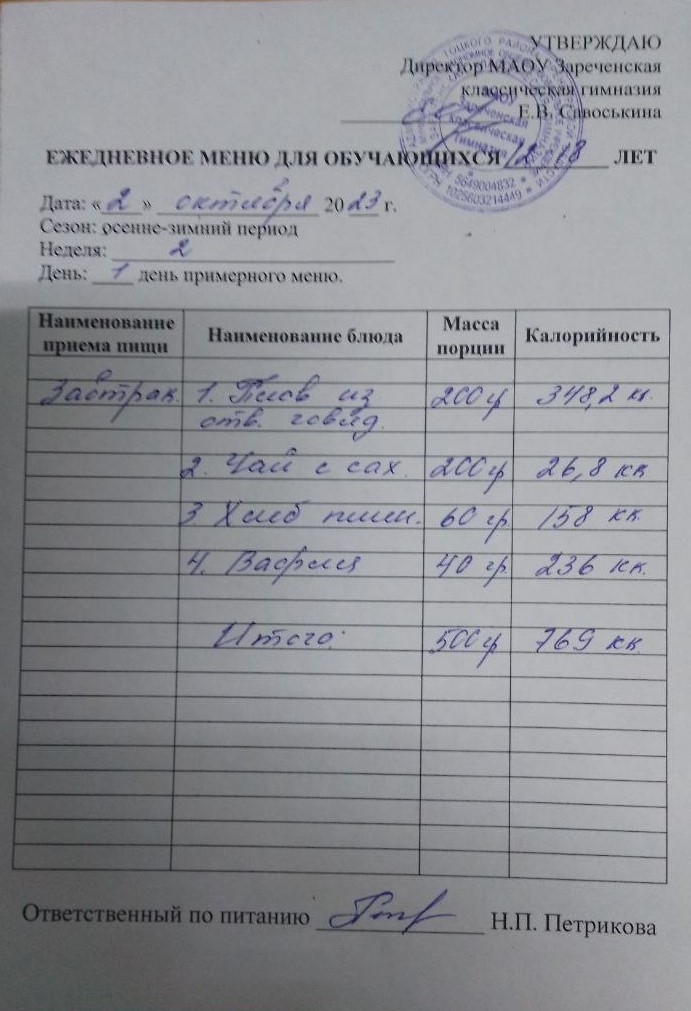 УТВЕРЖДАЮ
Директор МАОУ Зареченская
классическая гимназия
Е.В. Савоськина
МАОУ
Зареченская
классическая
гимназия
5649004832
1025603214449
ЕЖЕДНЕВНОЕ МЕНЮ ДЛЯ ОБУЧАЮЩИХСЯ 12-18 ЛЕТ
Дата: «2» октября 2023 г.
Сезон: осенне-зимний период
Неделя: 2
День: 1 день примерного меню.
Наименование приема пищи Наименование блюда Масса порции Калорийность
Завтрак. 1. Плов из 200 гр 348,2 кк.
отв. говяд.
2. Чай с сах. 200 гр 26,8 кк
3 Хлеб пшен. 60 гр. 158 кк.
4. Вафля 40 гр. 236 кк.
Итого: 500 гр 769 кк
Ответственный по питанию Н.П. Петрикова